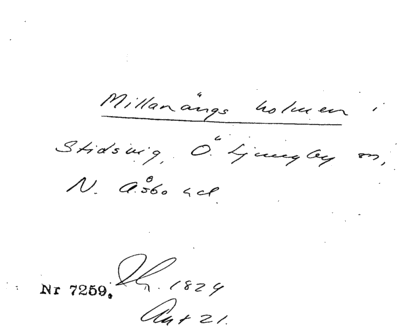 Millanängs holmen i
Stidsvig, Ö. Ljungby sn,
N. Åsbo hd.
Nr 7259. 1824
21.